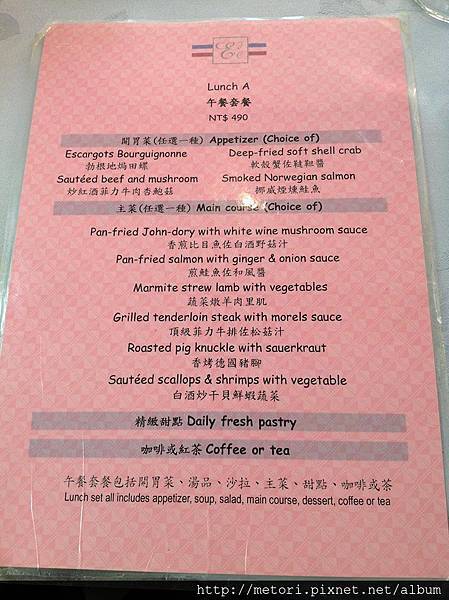 Lunch A
午餐套餐
NT$ 490
開胃菜(任選一種) Appetizer (Choice of)
Escargots Bourguignonne
勃根地焗田螺
Deep-fried soft shell crab
軟殼蟹佐韃靼醬
Sautéed beef and mushroom
炒紅酒菲力牛肉杏鮑菇
Smoked Norwegian salmon
挪威煙燻鮭魚
主菜(任選一種) Main course (Choice of)
Pan-fried John-dory with white wine mushroom sauce
香煎比目魚佐白酒野菇汁
Pan-fried salmon with ginger & onion sauce
煎鮭魚佐和風醬
Marmite strew lamb with vegetables
蔬菜燉羊肉里肌
Grilled tenderloin steak with morels sauce
頂級菲力牛排佐松菇汁
Roasted pig knuckle with sauerkraut
香烤德國豬腳
Sautéed scallops & shrimps with vegetable
白酒炒干貝鮮蝦蔬菜
精緻甜點 Daily fresh pastry
咖啡或紅茶 Coffee or tea
午餐套餐包括開胃菜、湯品、沙拉、主菜、甜點、咖啡或茶
Lunch set all includes appetizer, soup, salad, main course, dessert, coffee or tea
http://metori.pixnet.net/album